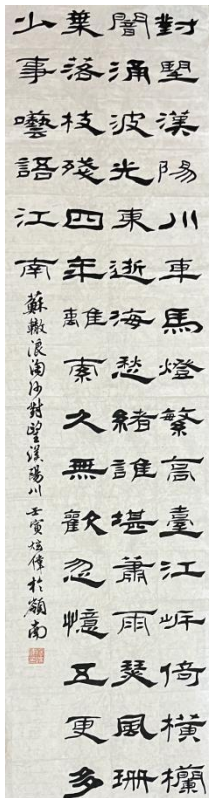 對望漢陽川車馬燈繁高臺江岸倚橫欄
闇涌波光東逝海愁緒誰堪蕭雨瑟風珊
葉落枝殘四年離索久無歡忽憶五更多
少事囈語江南
蘇轍浪淘沙對望漢陽川 壬寅炫偉於嶺南